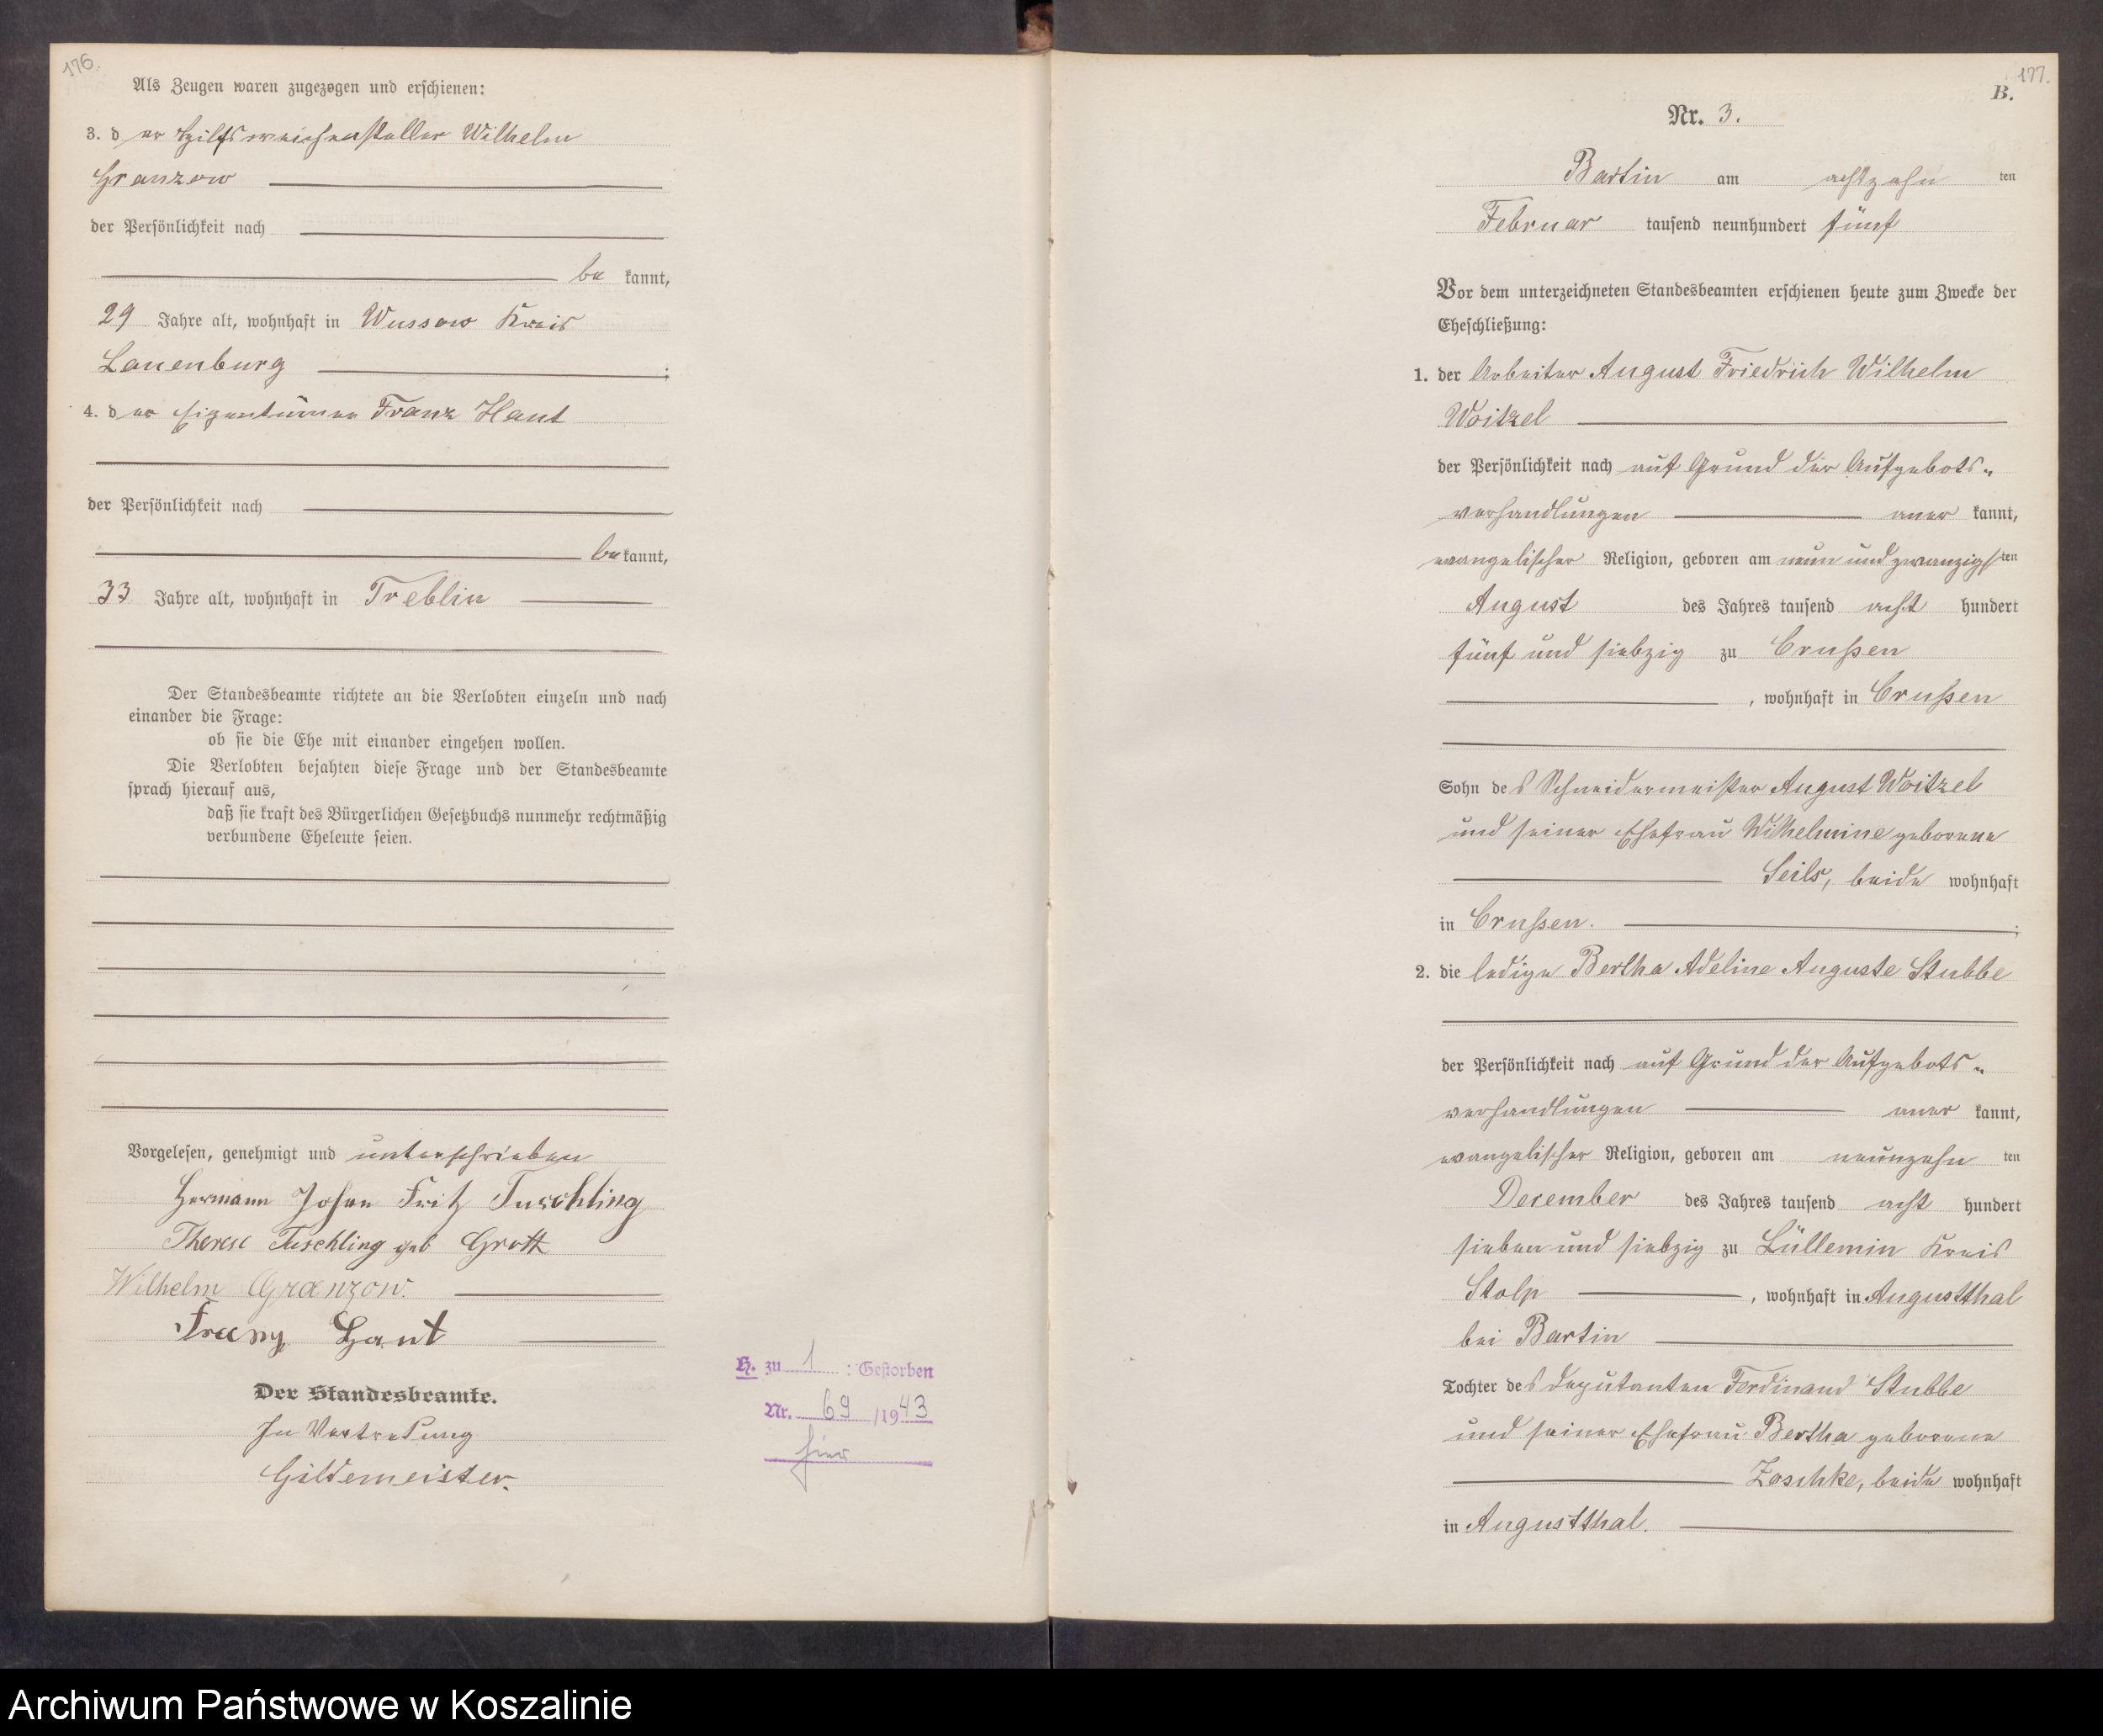 176.
Als Zeugen waren zugezogen und erschienen:
3. der Hilfsweichensteller Wilhelm
Granzow
der Persönlichkeit nach
be kannt,
29 Jahre alt, wohnhaft in Wussow Kreis
Lauenburg ;
4. der Eigentümer Franz Haut
der Persönlichkeit nach
be kannt,
33 Jahre alt, wohnhaft in Treblin
Der Standesbeamte richtete an die Verlobten einzeln und nach
einander die Frage:
ob sie die Ehe mit einander eingehen wollen.
Die Verlobten bejahten diese Frage und der Standesbeamte
sprach hierauf aus,
daß sie kraft des Bürgerlichen Gesetzbuchs nunmehr rechtmäßig
verbundene Eheleute seien.
Vorgelesen, genehmigt und unterschrieben
Hermann Johan Fritz Tuschling
Therese Tuschling geb Grott
Wilhelm Granzow.
Franz Haut
Der Standesbeamte.
In Vertretung
Gildemeister.
H. zu 1 : Gestorben
Nr. 69 /1943
hier
177.
B.
Nr. 3.
Bartin am achtzehn ten
Februar tausend neunhundert fünf
Vor dem unterzeichneten Standesbeamten erschienen heute zum Zwecke der
Eheschließung:
1. der Arbeiter August Friedrich Wilhelm
Woitzel
der Persönlichkeit nach auf Grund der Aufgebots-
verhandlungen aner kannt,
evangelischer Religion, geboren am neun und zwanzigsten
August des Jahres tausend acht hundert
fünf und siebzig zu Crußen
, wohnhaft in Crußen
Sohn des Schneidermeister August Woitzel
und seiner Ehefrau Wilhelmine geborene
Seils, beide wohnhaft
in Crußen. ;
2. die ledige Bertha Adeline Auguste Stubbe
der Persönlichkeit nach auf Grund der Aufgebots-
verhandlungen aner kannt,
evangelischer Religion, geboren am neunzehn ten
Dezember des Jahres tausend acht hundert
sieben und siebzig zu Lüllemin Kreis
Stolp , wohnhaft in Augustthal
bei Bartin
Tochter des Deputanten Ferdinand Stubbe
und seiner Ehefrau Bertha geborene
Zaschke, beide wohnhaft
in Augustthal.
Archiwum Państwowe w Koszalinie